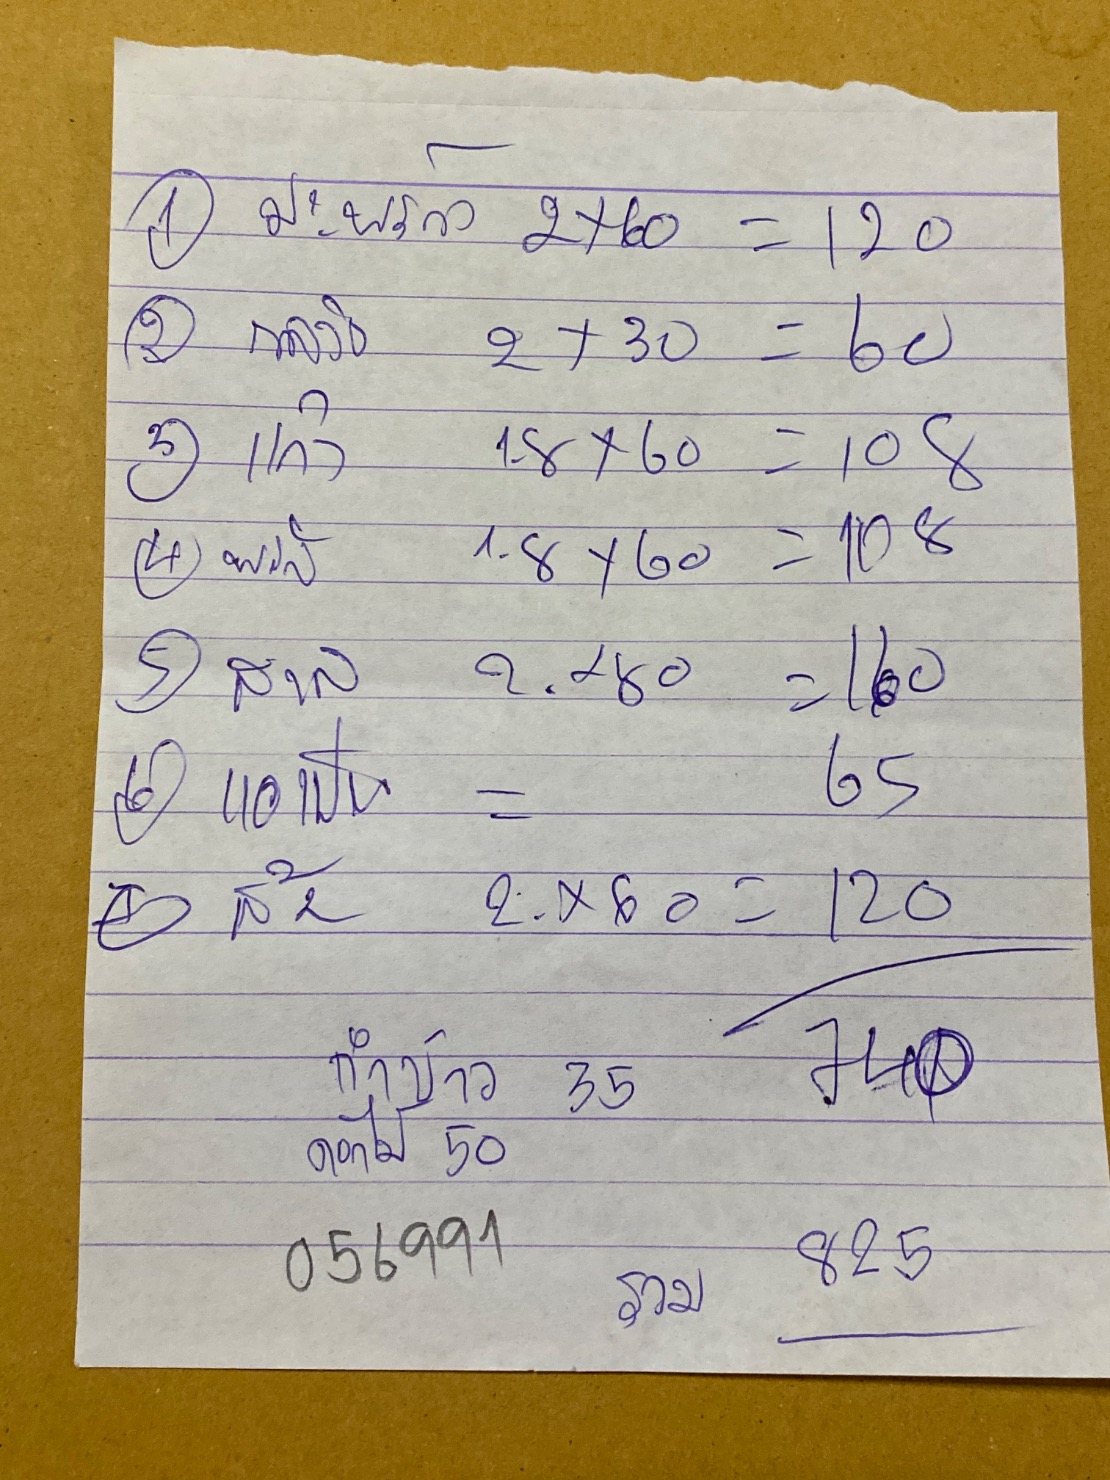 ① มะพร้าว 2x60 = 120
② กล้วย 2 x 30 = 60
③ แก้ว 1.8 x 60 = 108
④ ฝรั่ง 1.8 x 60 = 108
⑤ สาลี่ 2. x80 = 160
⑥ แอปเปิ้ล = 65
⑦ ส้ม 2. x 60 = 120
740
35
ดอกไม้ 50
056991
รวม 825